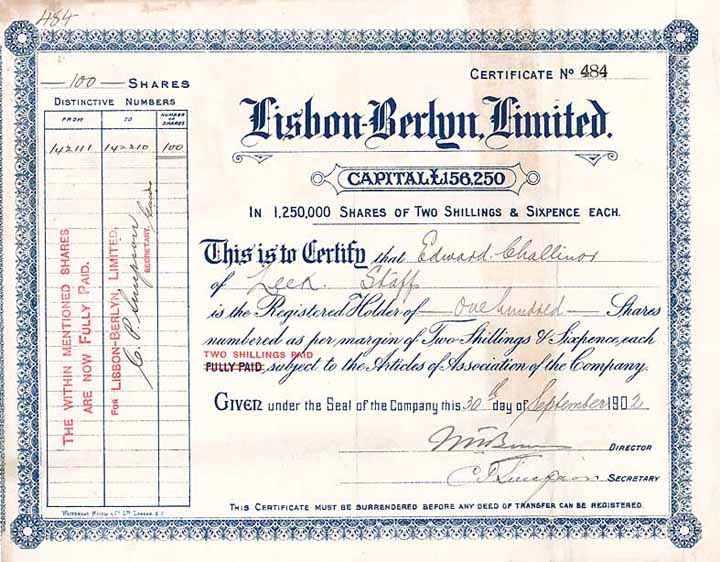 484
100 SHARES
DISTINCTIVE NUMBERS
FROM TO NUMBER OF SHARES
142111 142210 100
THE WITHIN MENTIONED SHARES
ARE NOW FULLY PAID.
FOR LISBON-BERLYN, LIMITED,
C. P. Simpson
SECRETARY.
CERTIFICATE No 484
Lisbon-Berlyn, Limited.
CAPITAL £156,250
IN 1,250,000 SHARES OF TWO SHILLINGS & SIXPENCE EACH.
This is to Certify that Edward Challinor
of Leek. Staff
is the Registered Holder of one hundred Shares
numbered as per margin of Two Shillings & Sixpence, each
TWO SHILLINGS PAID
FULLY PAID, subject to the Articles of Association of the Company.
GIVEN under the Seal of the Company this 30th day of September 1902
DIRECTOR
C P Simpson SECRETARY
THIS CERTIFICATE MUST BE SURRENDERED BEFORE ANY DEED OF TRANSFER CAN BE REGISTERED.